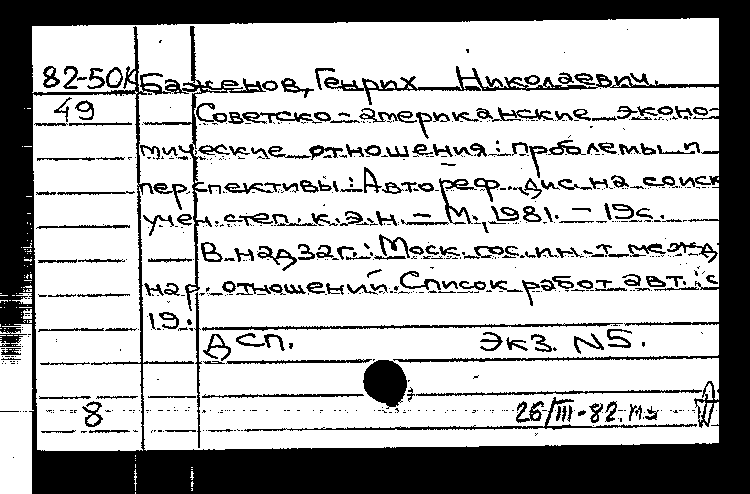 82-50К Баженов, Генрих Николаевич.
49 Советско-американские эконо-
мические отношения: проблемы и
перспективы: Автореф. дис. на соиск
учен. степ. к.э.н. – М., 1981. – 19с.
В надзаг.: Моск. гос. ин-т межд
нар. отношений. Список работ авт.: с
19.
ДСП. Экз. N5.
8 26/III-82.